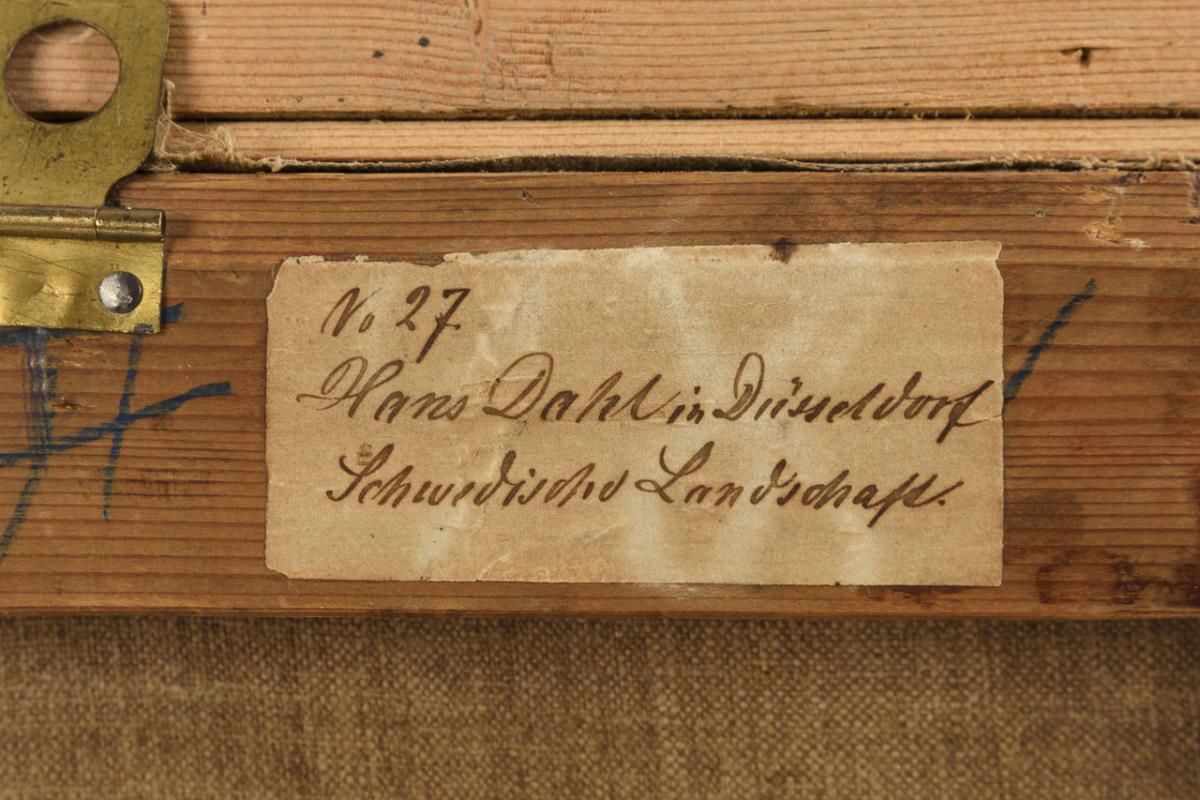 No 27
Hans Dahl in Düsseldorf
Schwedische Landschaft.